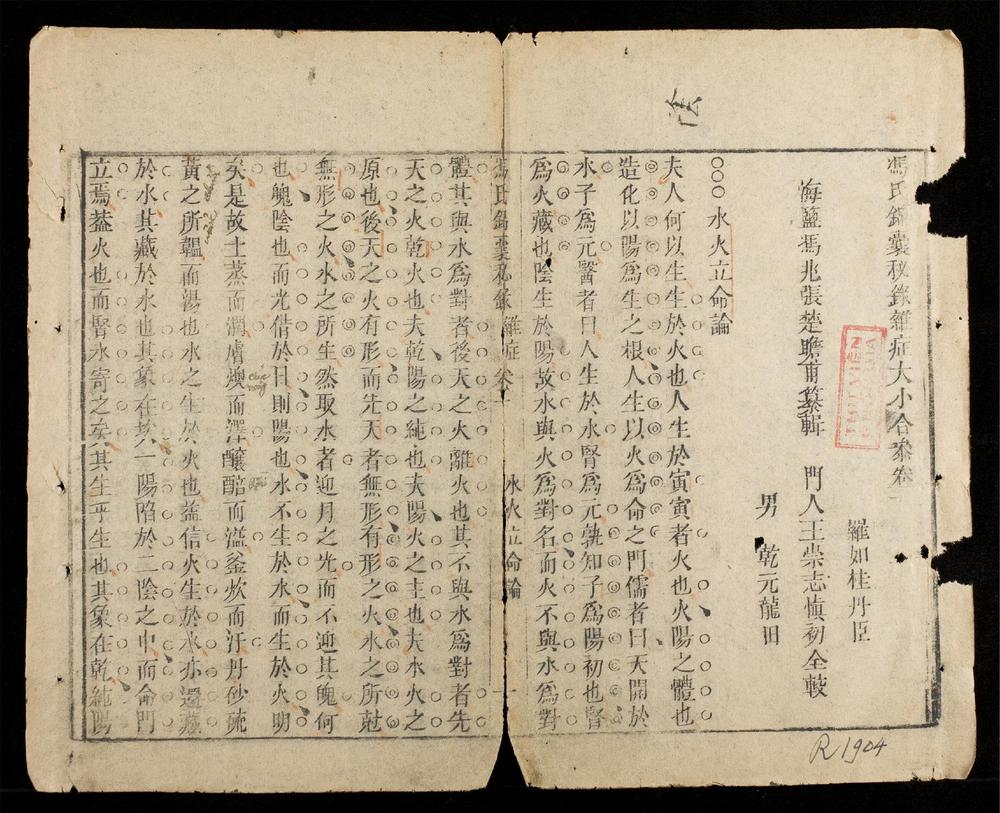 馮氏錦囊秘錄雜症大小合叅卷一
羅如桂丹臣
海鹽馮兆張楚瞻甫纂輯 門人王崇志愼初仝較
男 乾元龍田
○○○水火立命論
夫人何以生生於火也人生於寅寅者火也火陽之體也
造化以陽爲生之根人生以火爲命之門儒者曰天開於
水子爲元醫者曰人生於水腎爲元孰知子爲陽初也腎
爲火藏也陰生於陽故水與火爲對名而火不與水爲對
馮氏錦囊秘錄 雜症卷一 水火立命論 一
體其與水爲對者後天之火離火也其不與水爲對者先
天之火乾火也夫乾陽之純也夫陽火之主也夫水火之
原也後天之火有形而先天者無形有形之火水之所尅
無形之火水之所生然取水者迎月之光而不迎其魄何
也魄陰也而光借於日則陽也水不生於水而生於火明
矣是故土蒸而潤膚燠而澤釀醅而溢釜炊而汗丹砂硫
黃之所韞而湯也水之生於火也益信火生於水亦還藏
於水其藏於水也其象在坎一陽陷於二陰之中而命門
立焉蓋火也而腎水寄之矣其生乎生也其象在乾純陽
THU VIEN
R.1904